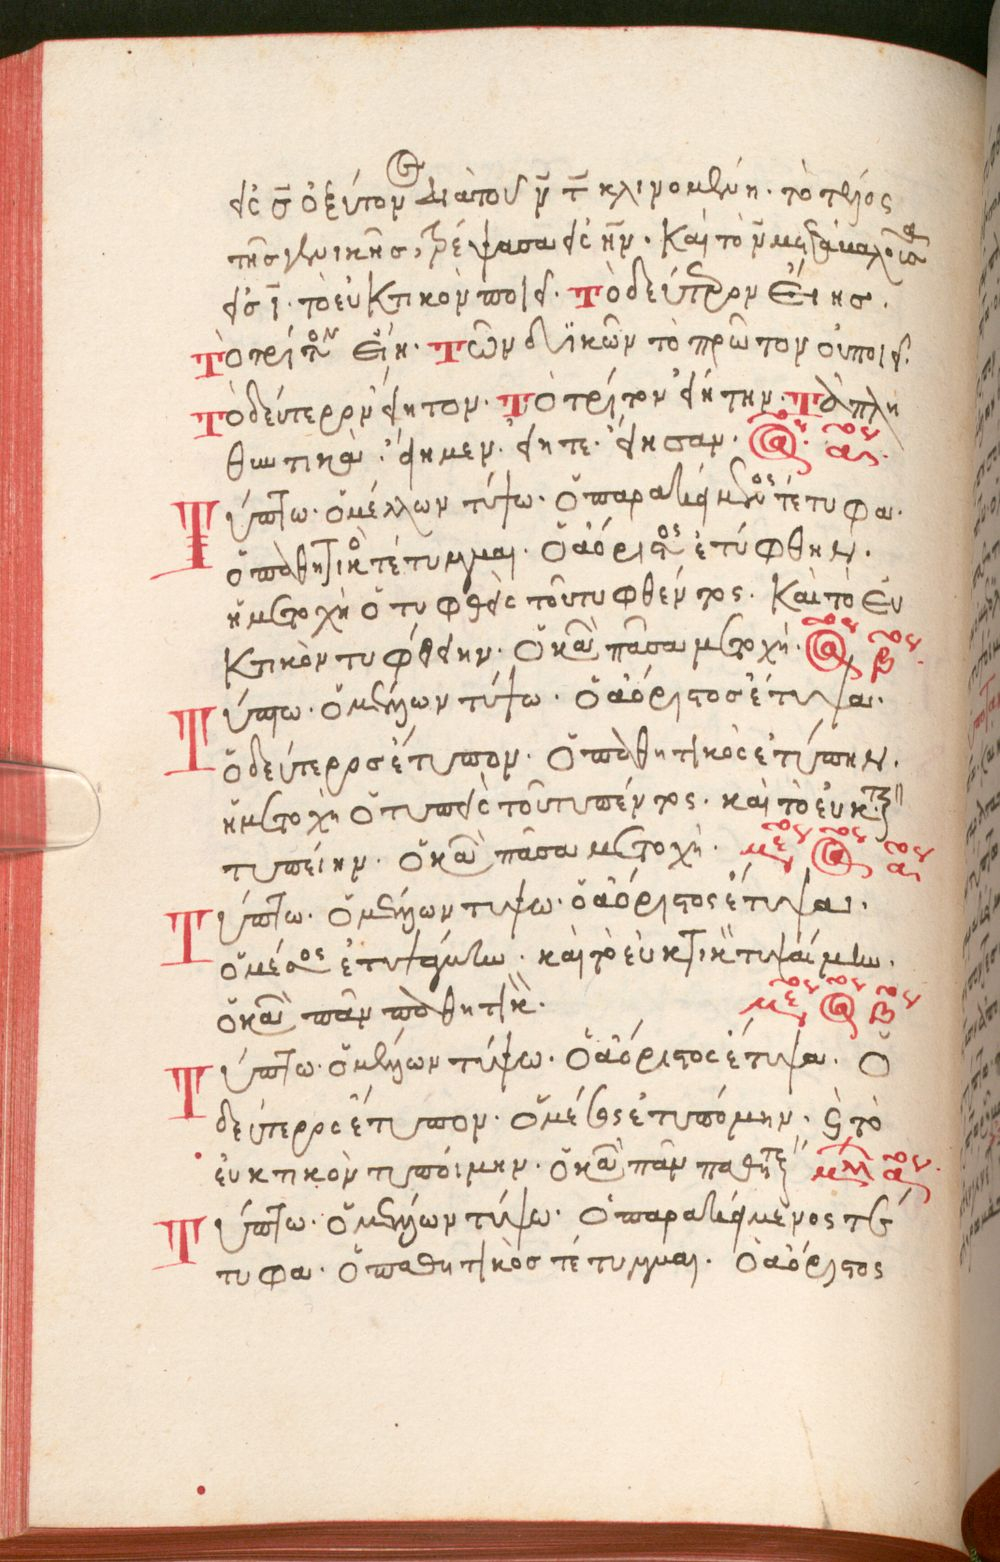 εἰς σ̄ ὀξύτον διὰ τοῦ ν̄ τ̄ κλινομένη· τὸ τέλος
τῆς γενικῆς, τρέψασα εἰς ην. Καὶ τὸ ν
εἰς ῑ. τὸ εὐκτικὸν ποιεῖ. Τὸ δεύτερον εἴης.
Τὸ τρίτον εἴη. Τῶν δυϊκῶν τὸ πρῶτον οὐ ποιεῖ.
Τὸ δεύτερον εἴητον. Τὸ τρίτον εἰήτην. Τὰ πλη
θυντικά. εἴημεν. εἴητε. εἴησαν. ᾱος.
Τύπτω. Ὁ μέλλων τύψω. Ὁ παρακείμενος τέτυφα.
Ὁ παθητικὸς τέτυμμαι. Ὁ ἀόριστος ἐτύφθην.
ἡ μετοχὴ ὁ τυφθεὶς τοῦ τυφθέντος. Καὶ τὸ εὐ
κτικὸν τυφθείην. Ὁ πᾶσα μετοχή. βος.
Τύπτω. Ὁ μέλλων τύψω. Ὁ ἀόριστος ἔτυψα.
Ὁ δεύτερος ἔτυπον. Ὁ παθητικὸς ἐτύπην.
ἡ μετοχὴ ὁ τυπεὶς τοῦ τυπέντος. καὶ τὸ εὐκτι
τυπείην. Ὁ πᾶσα μετοχή. μες ᾱος
Τύπτω. Ὁ μέλλων τύψω. ὁ ἀόριστος ἔτυψα.
Ὁ μέσος ἐτυψάμην. καὶ τὸ εὐκτικ τυψαίμην.
Ὁ πᾶν παθητικ. μες βος
Τύπτω. Ὁ μέλλων τύψω. Ὁ ἀόριστος ἔτυψα. Ὁ
δεύτερος ἔτυπον. Ὁ μέσος ἐτυπόμην. ϗ τὸ
εὐκτικὸν τυποίμην. Ὁ πᾶν παθητ ᾱος.
Τύπτω. Ὁ μέλλων τύψω. Ὁ παρακείμενος τέ
τυφα. Ὁ παθητικὸς τέτυμμαι. Ὁ ἀόριστος